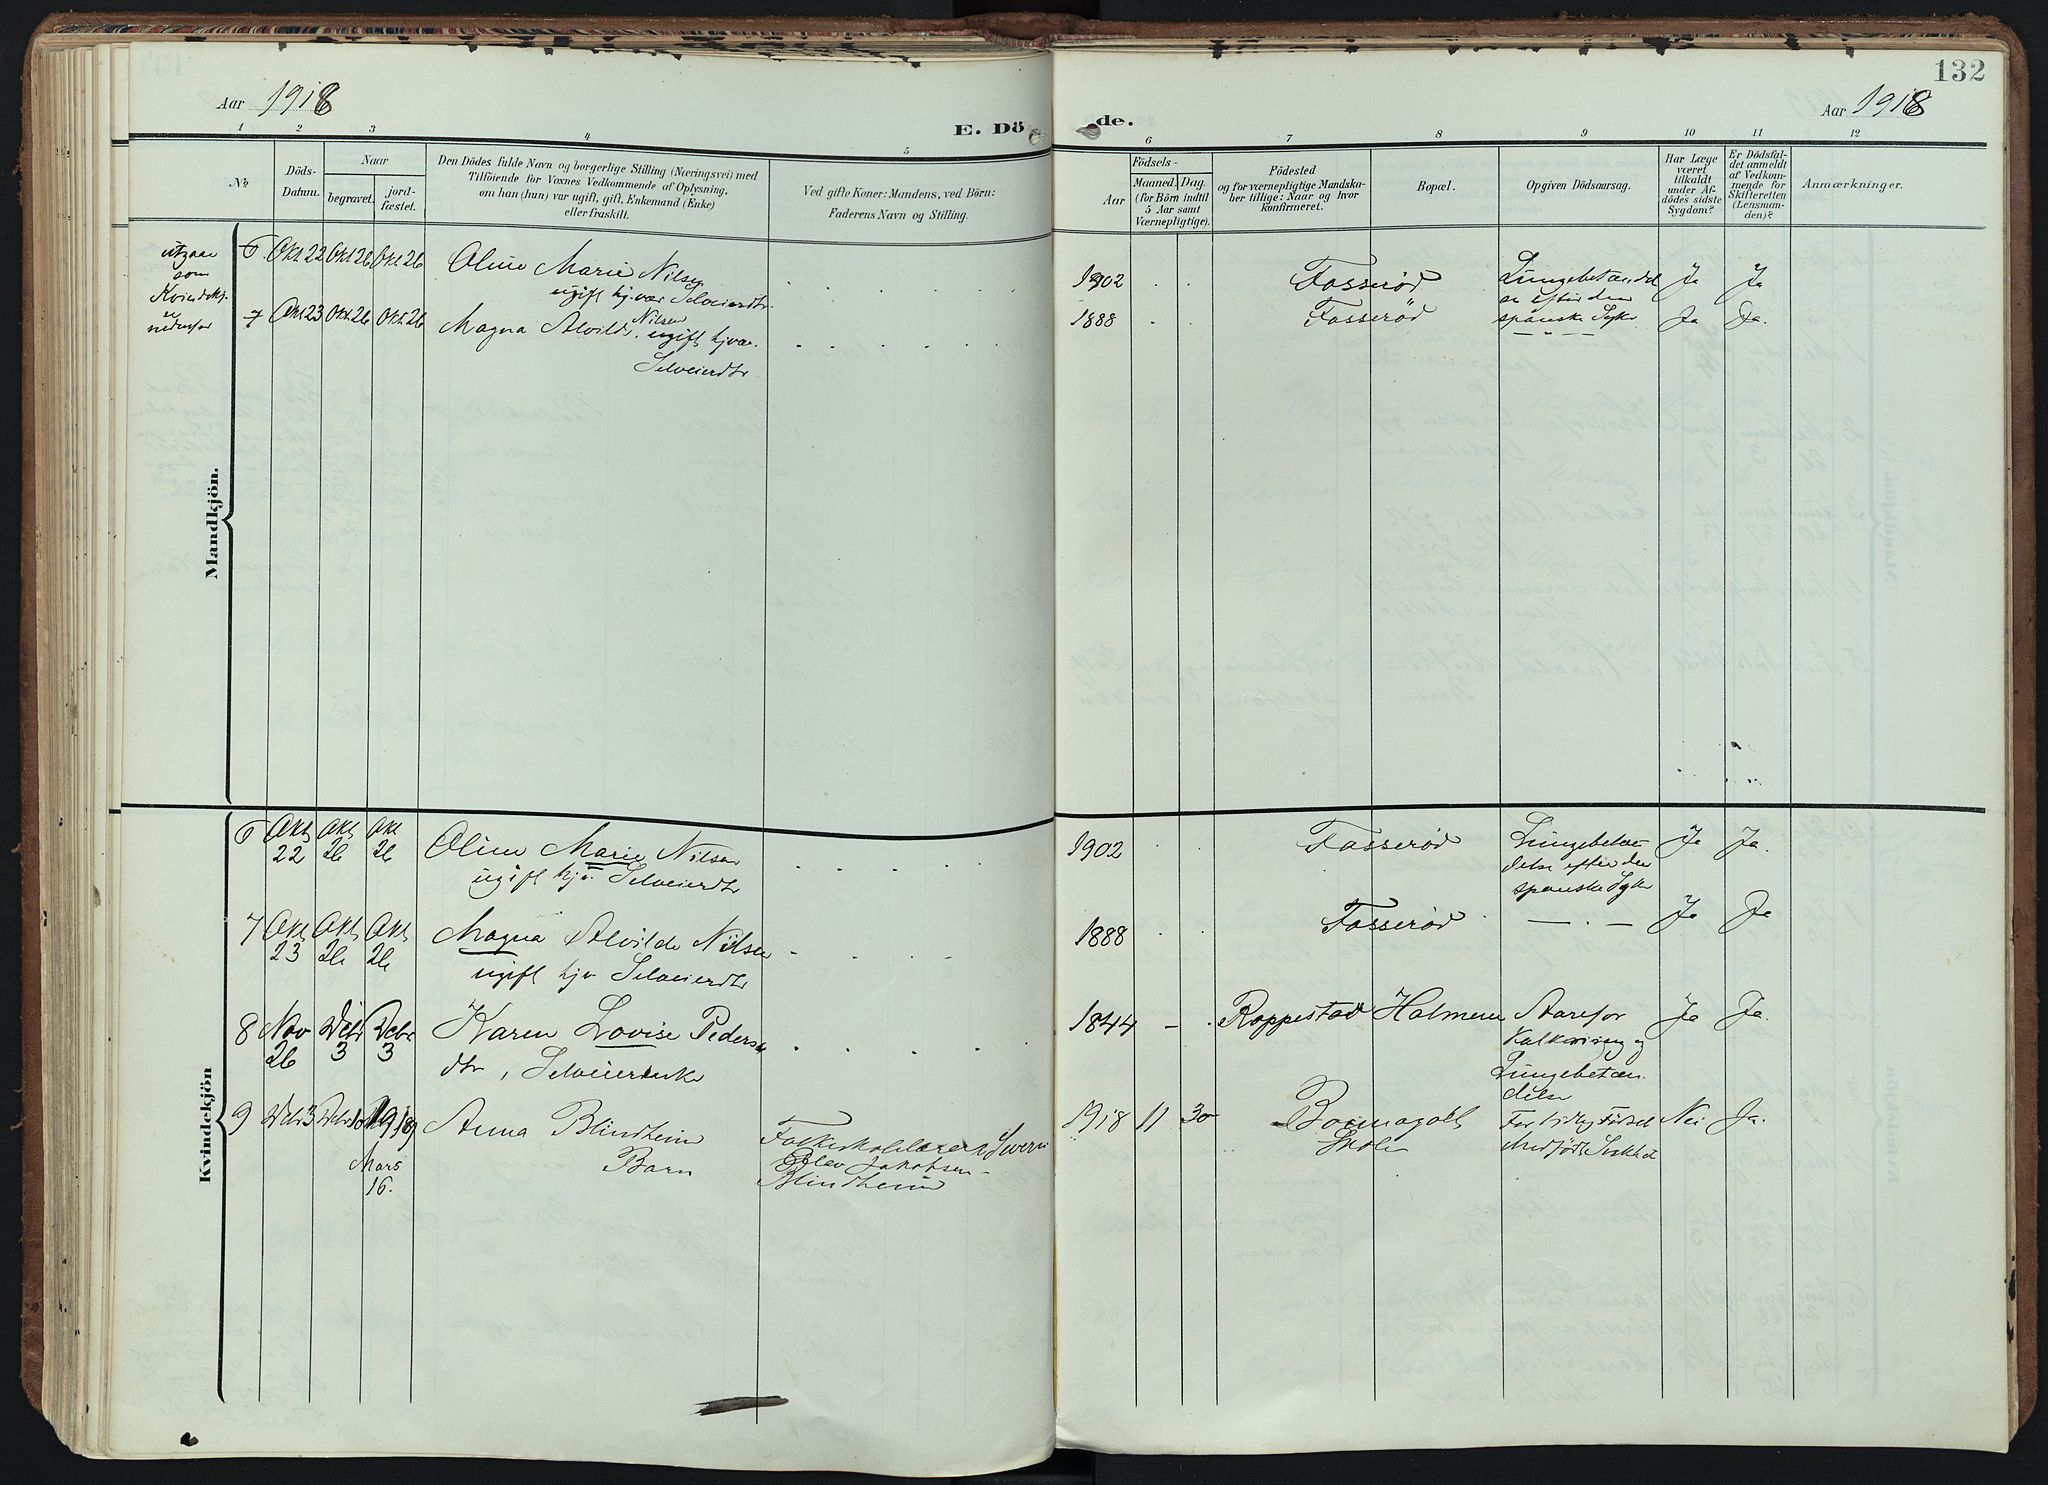 132
Aar 1918
Aar 1918
E. Dö
de.
1 2 3 4 5 6 7 8 9 10 11 12
Nr.
Döds-
Datum.
Naar
begravet.
jord-
fæstet.
Den Dödes fulde Navn og borgerlige Stilling (Næringsvei) med
Tilföiende for Voxnes Vedkommende af Oplysning,
om han (hun) var ugift, gift, Enkemand (Enke)
eller fraskilt.
Ved gifte Koner: Mandens, ved Börn:
Faderens Navn og Stilling.
Födsels-
Aar
Maaned. Dag.
(for Börn indtil
5 Aar samt
Værnepligtige).
Födested
og for værnepligtige Mandska-
ber tillige: Naar og hvor
konfirmeret.
Bopæl.
Opgiven Dödsaarsag.
Har Læge
været
tilkaldt
under Af-
dödes sidste
Sygdom?
Er Dödsfal-
det anmeldt
af Vedkom-
mende for
Skifteretten
(Lensman-
den)?
Anmærkninger.
utgaar
som
Kvindekj.
se
nedenfor
Mandkjön.
6. Okt 22 Okt 26 Okt 26 Oline Marie Nilsen
ugift hj.vær Selveierdtr
1902 Fosserød Lungebetændel
se efter den
spanske Syke
Ja Ja
7 Okt 23 Okt. 26 Okt. 26 Magna Alvilde Nilsen
ugift hj.vær.
Selveierdtr
1888 Fosserød — " — Ja Ja.
Kvindekjön
6 Okt 22 Okt 26 Okt 26 Oline Marie Nilsen
ugift hjv. Selveierdtr
1902 Fosserød Lungebetæn
delse efter den
spanske Syke
Ja Ja.
7 Okt 23 Okt 26 Okt 26 Magna Alvilde Nilsen
ugift hjv Selveierdtr
1888 Fosserød — . — Ja Ja
8 Nov 26 Debr 3 Debr 3 Karen Lovise Peders
dtr, Selveierenke
1844 - . Roppestad Holmene Aarefor
kalkning og
Lungebetæn
delse
Ja Ja.
9 Debr 3 Debr 10 1919
Mars
16.
Anna Blindheim
Barn
Folkeskolelærer Severin
Olav Jakobsen
Blindheim
1918 11 30 Bommagolt
Skole
For tidlig Fødsel
Medfødt Svakhet
Nei Ja.